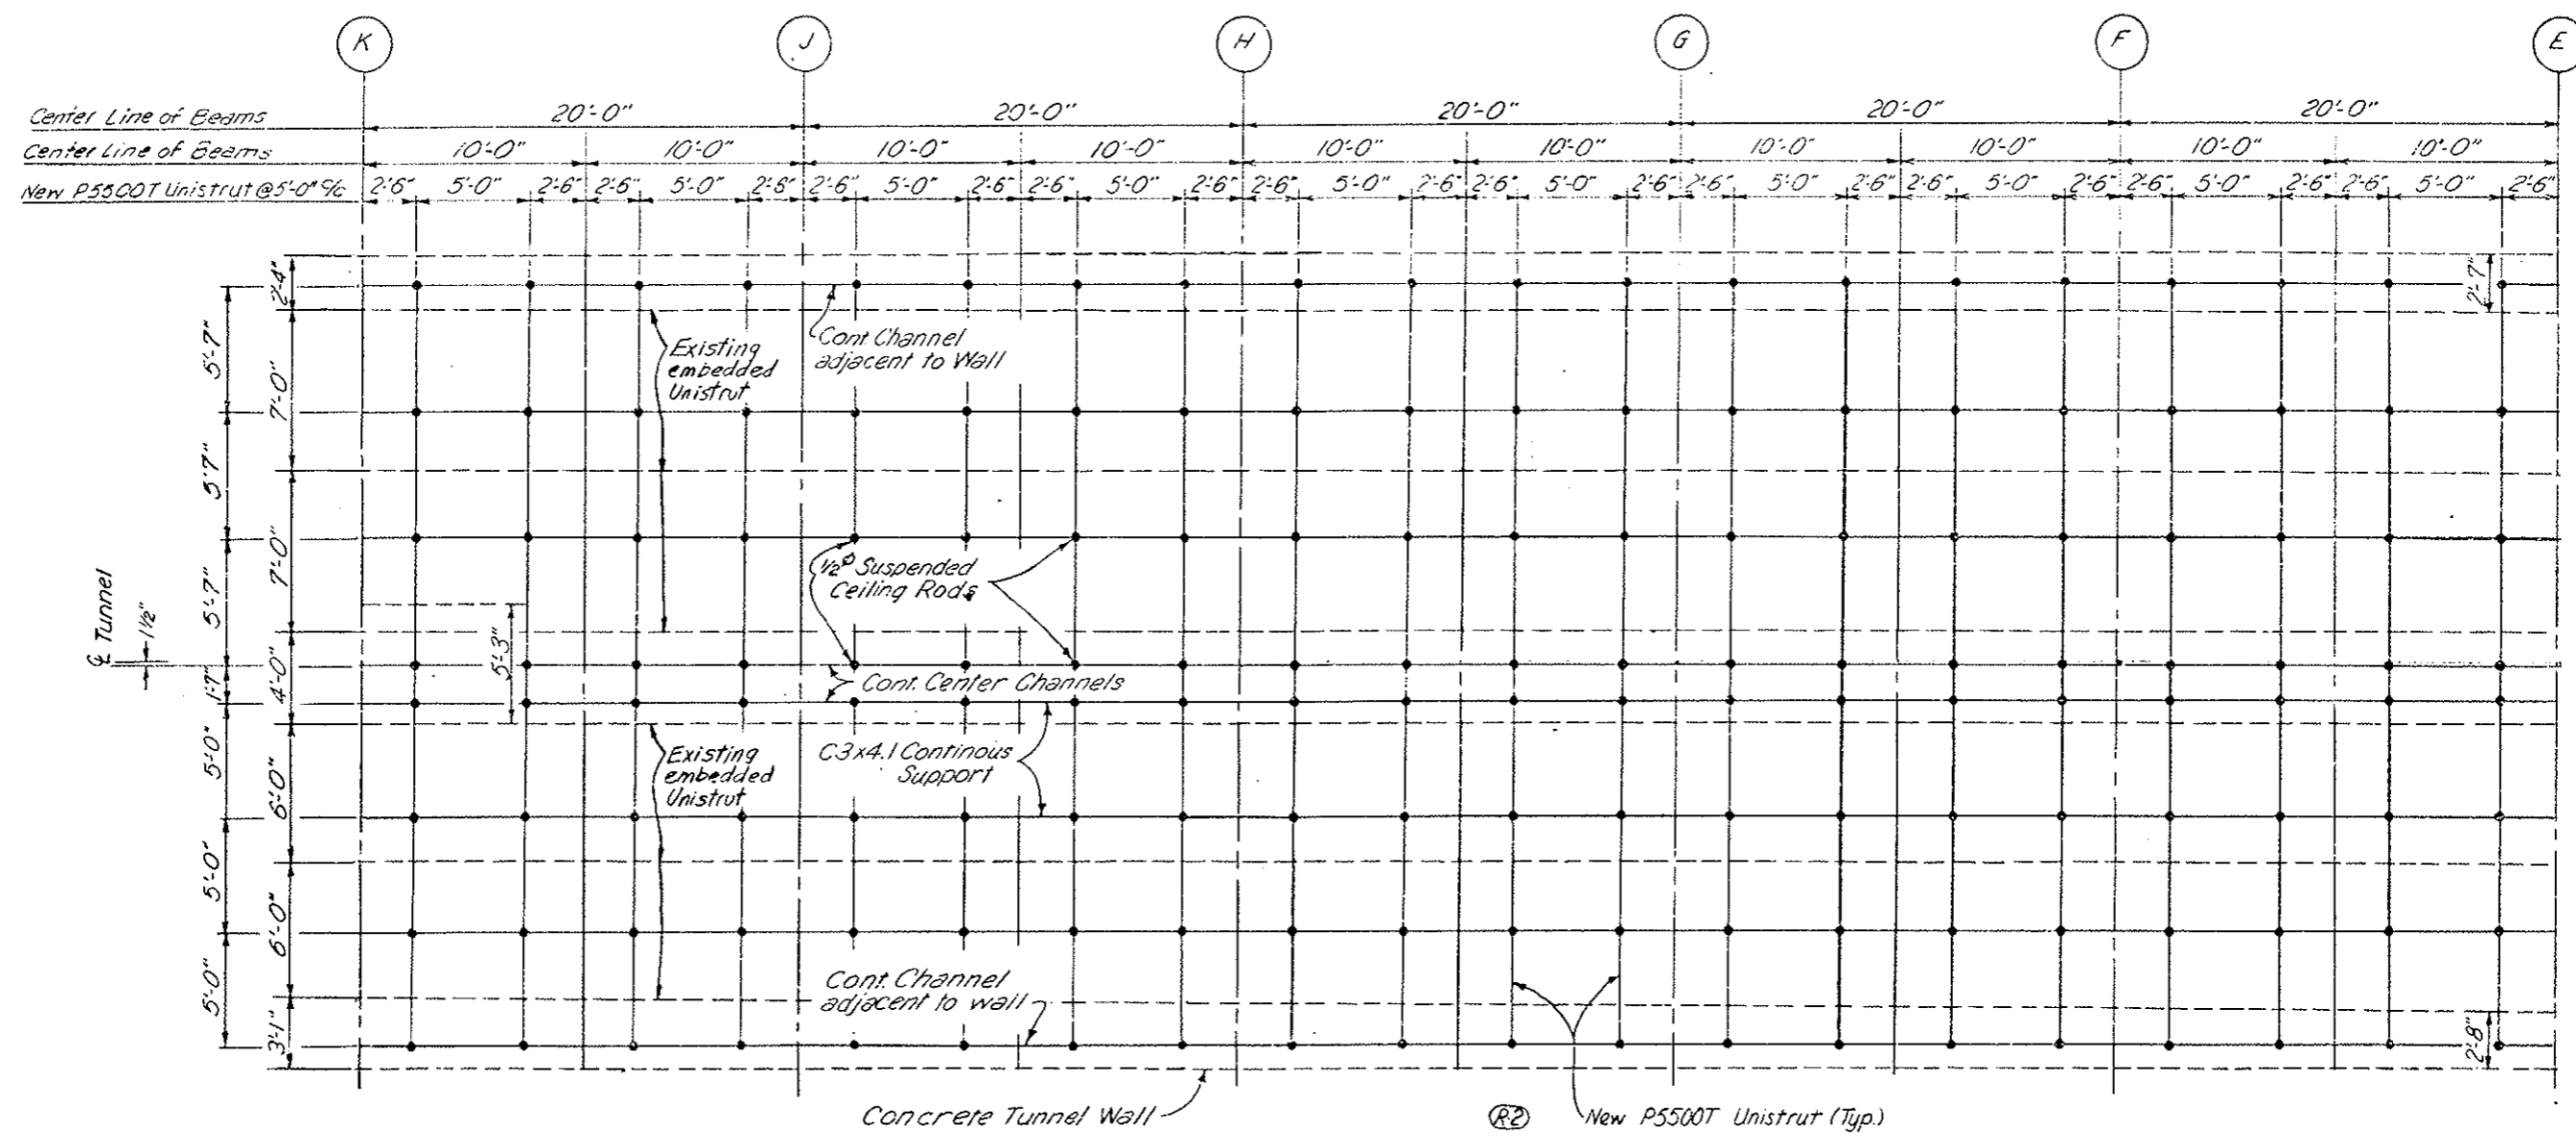 K J H G F E
Center Line of Beams 20'-0" 20'-0" 20'-0" 20'-0" 20'-0"
Center Line of Beams 10'-0" 10'-0" 10'-0" 10'-0" 10'-0" 10'-0" 10'-0" 10'-0" 10'-0" 10'-0"
New P5500T Unistrut @ 5'-0" c/c 2'-6" 5'-0" 2'-6" 2'-6" 5'-0" 2'-6" 2'-6" 5'-0" 2'-6" 2'-6" 5'-0" 2'-6" 2'-6" 5'-0" 2'-6" 2'-6" 5'-0" 2'-6" 2'-6" 5'-0" 2'-6" 2'-6" 5'-0" 2'-6" 2'-6" 5'-0" 2'-6" 2'-6" 5'-0" 2'-6"
2'-4"
2'-7"
5'-7"
7'-0"
Existing
embedded
Unistrut
Cont Channel
adjacent to Wall
5'-7"
7'-0"
5'-7"
½"ø Suspended
Ceiling Rods
℄ Tunnel
1½"
5'-3"
4'-0"
1'-7"
Cont. Center Channels
5'-0"
6'-0"
Existing
embedded
Unistrut
C3x4.1 Continous
Support
5'-0"
6'-0"
5'-0"
3'-1"
Cont. Channel
adjacent to wall
2'-8"
Concrete Tunnel Wall
R-2 New P5500T Unistrut (Typ.)